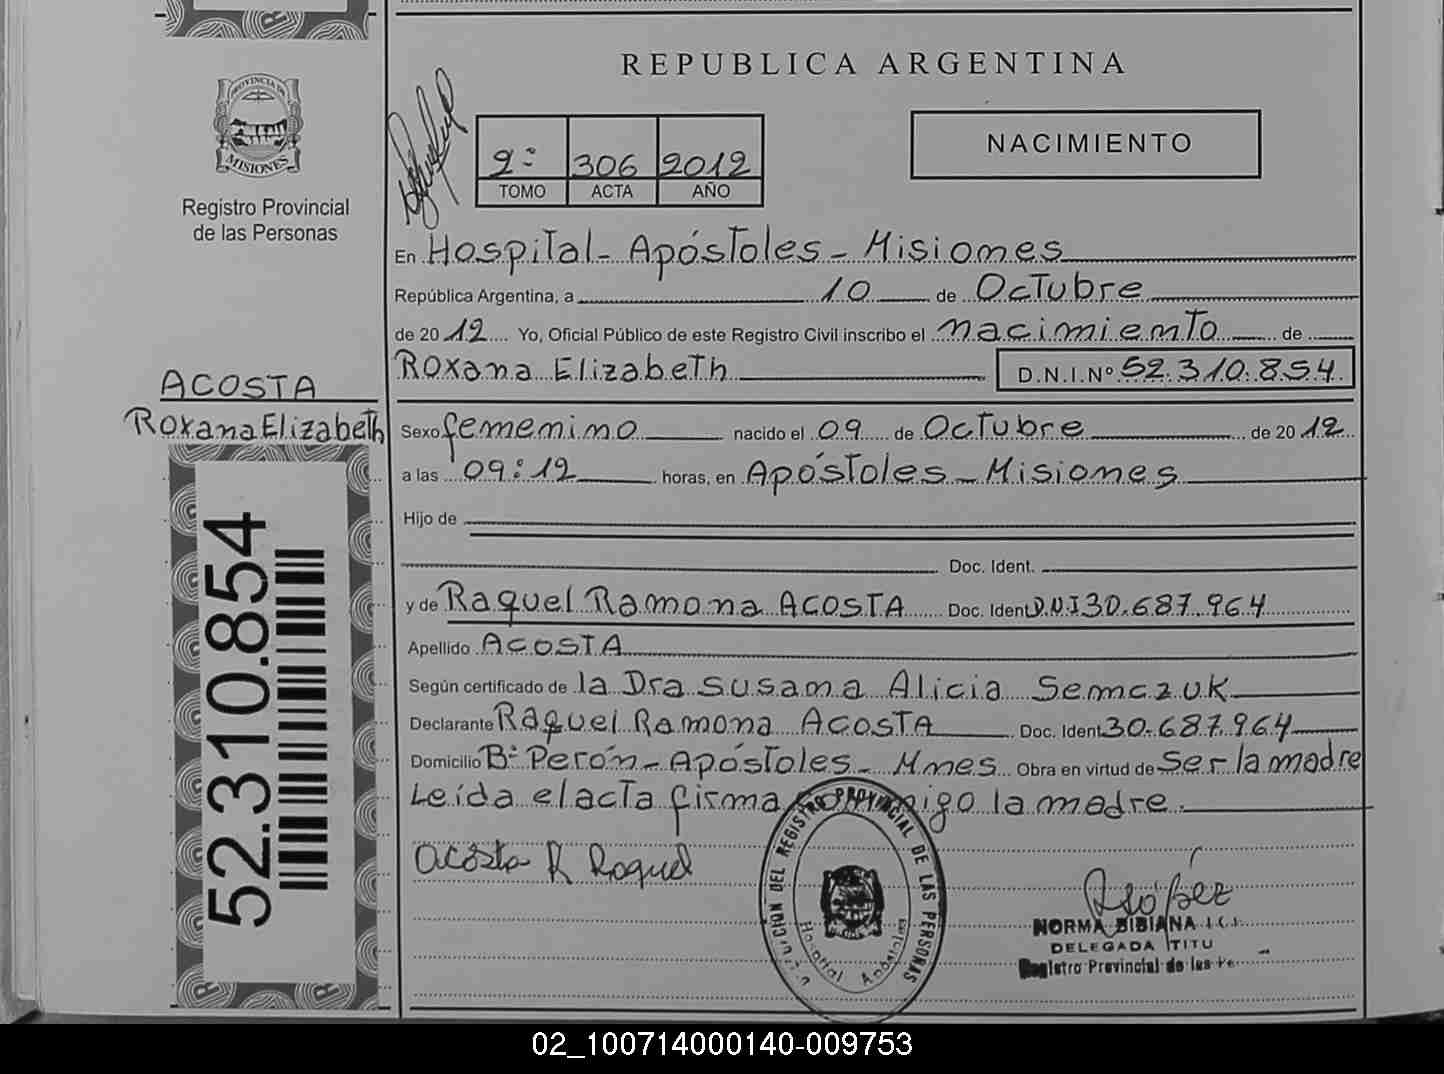 REPUBLICA ARGENTINA
PROVINCIA DE
MISIONES
Registro Provincial
de las Personas
2º 306 2012
TOMO ACTA AÑO
NACIMIENTO
En Hospital - Apóstoles - Misiones
República Argentina, a 10 de Octubre
de 20 12 Yo, Oficial Público de este Registro Civil inscribo el nacimiento de
Roxana Elizabeth D.N.I.Nº 52.310.854
ACOSTA
Roxana Elizabeth
Sexo femenino nacido el 09 de Octubre de 20 12
a las 09:12 horas, en Apóstoles - Misiones
Hijo de
Doc. Ident.
y de Raquel Ramona ACOSTA Doc. Ident D.N.I 30.687.964
Apellido ACOSTA
Según certificado de la Dra Susana Alicia Semczuk
Declarante Raquel Ramona ACOSTA Doc. Ident 30.687.964
Domicilio Bº Perón - Apóstoles - Mnes Obra en virtud de Ser la madre
Leída el acta firma conmigo la madre.
52.310.854
Acosta R Raquel
DEL REGISTRO PROVINCIAL DE LAS PERSONAS
Hospital Apóstoles
NORMA BIBIANA
DELEGADA TITU
Registro Provincial de las Pe
02_100714000140-009753